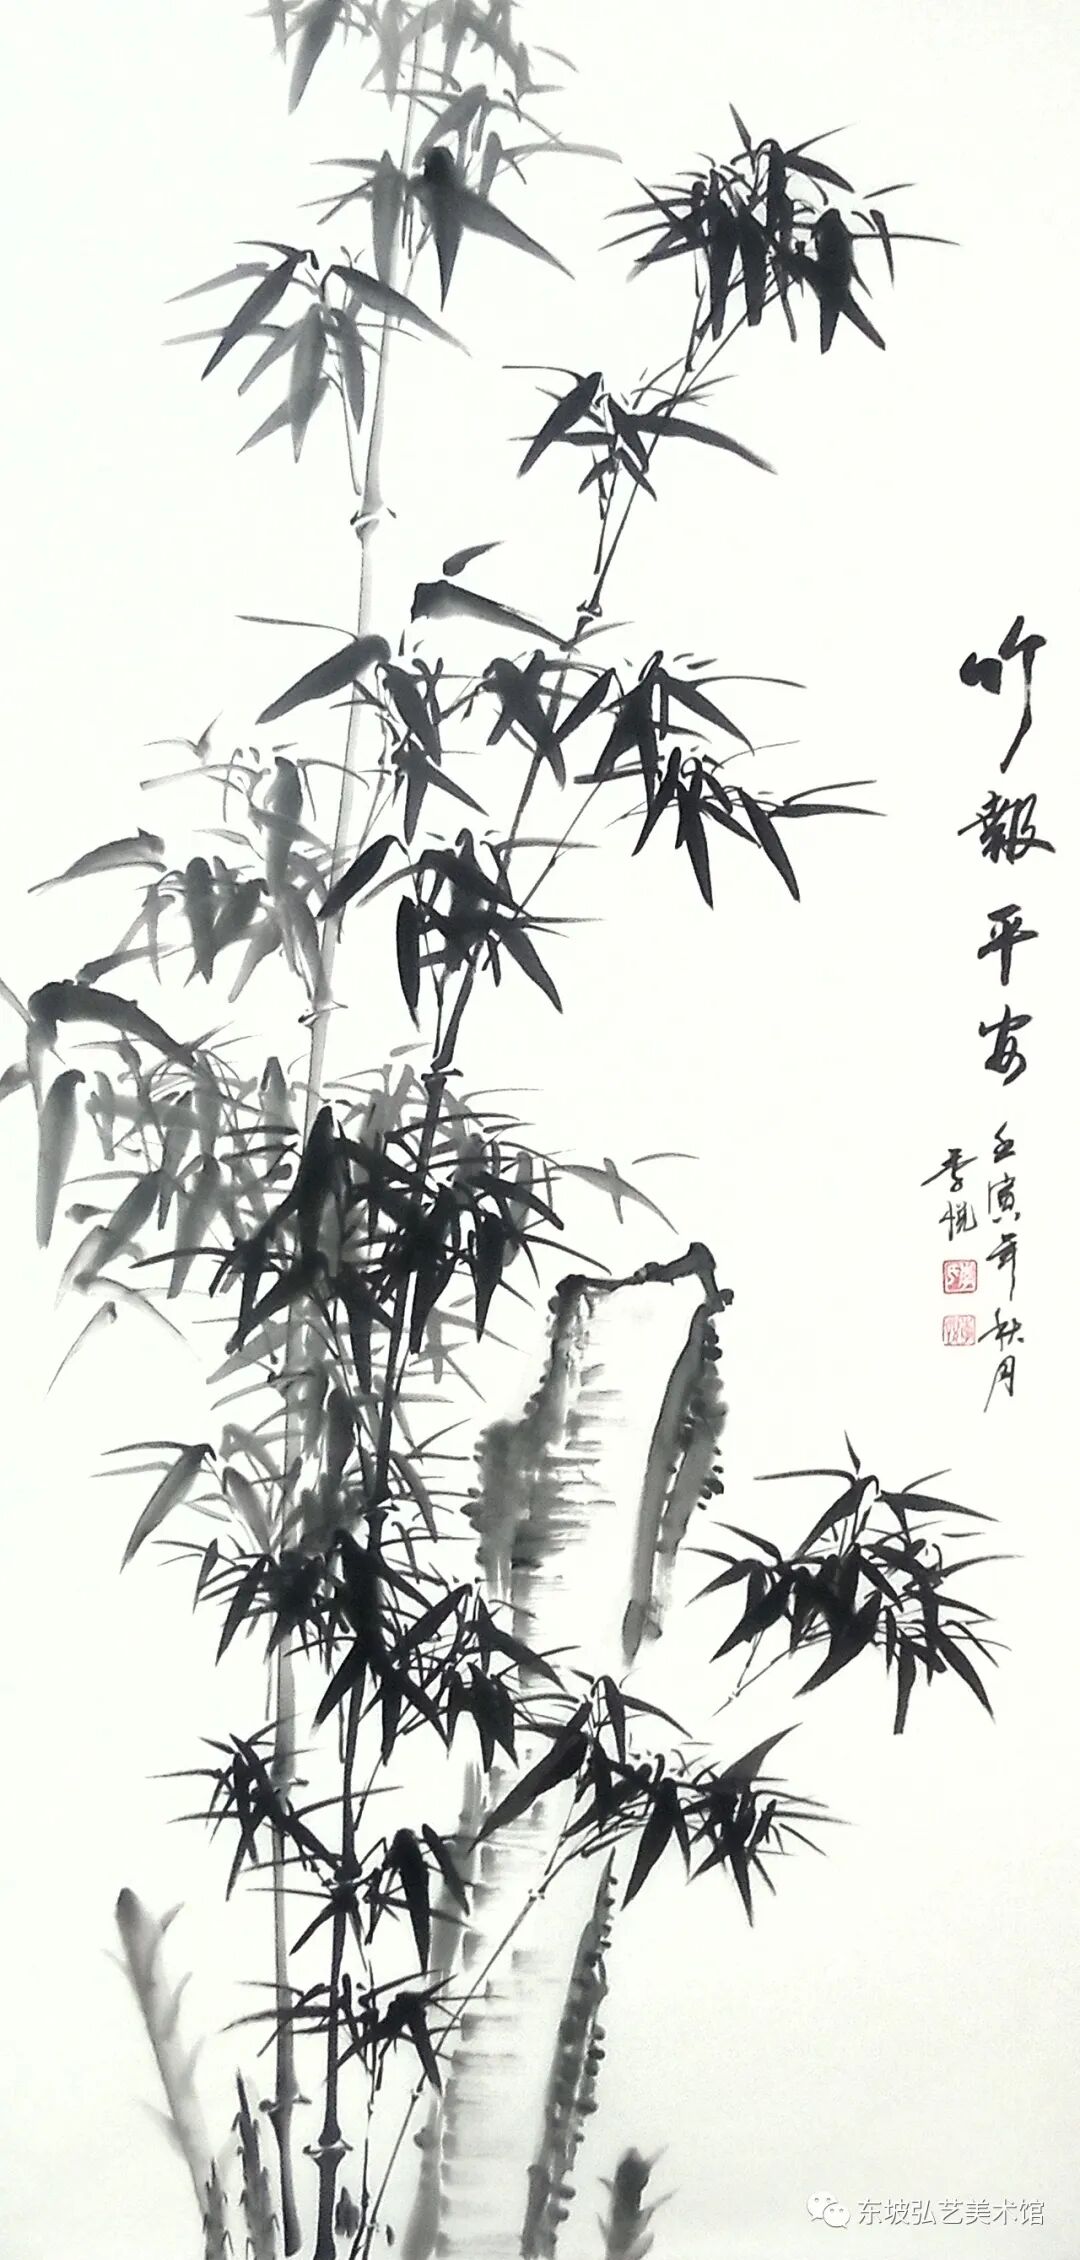 竹報平安
壬寅年秋月
季悦
东坡弘艺美术馆